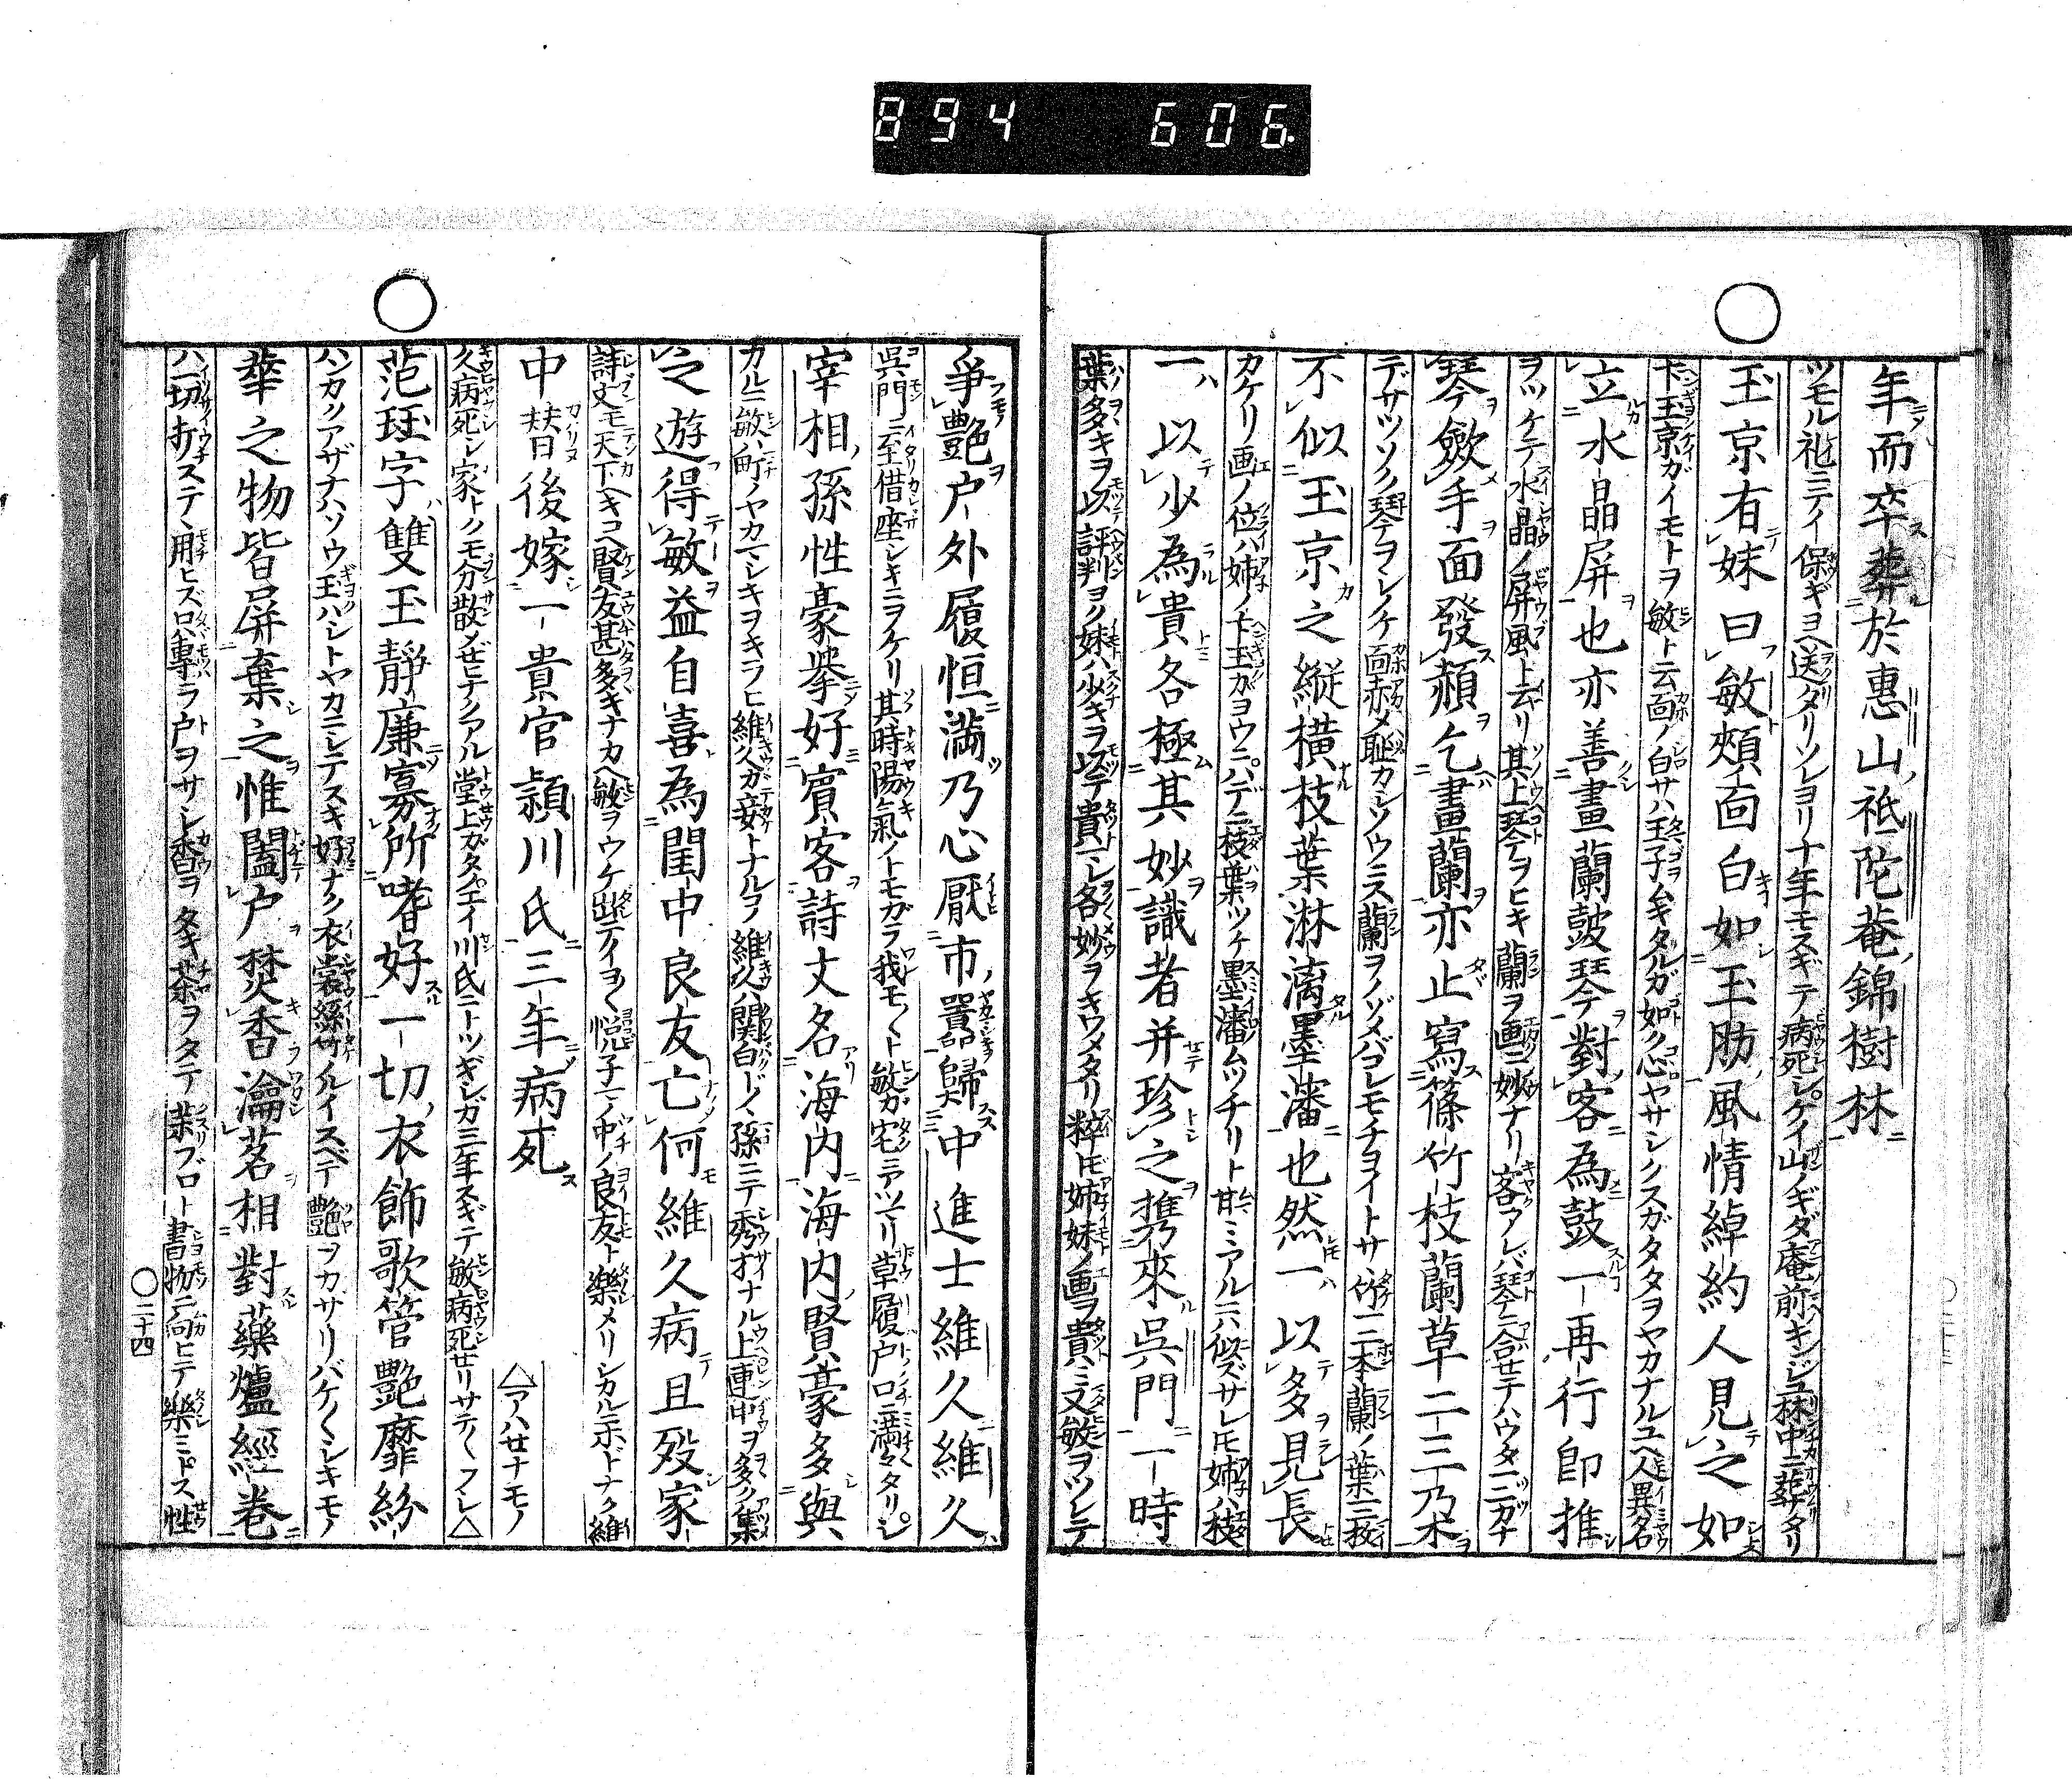 894 606.
年而卒葬於惠山祇陀菴錦樹林
ツモル礼ニテイ保ギヨヘ送タリソレヨリ十年モスギテ病死シケイ山ノギダ庵前キンジユ林中ニ葬ナタリ
玉京有妹曰敏頰面白如玉肪風情綽約人見之如
卞玉京ガイモトヲ敏ト云面ノ白サハ玉子ムキタルガ如ク心ヤサシクスガタタヲヤカナルユヘ人異名
立水晶屏也亦善畫蘭鼓琴對客為鼓一再行即推
ヲツケテ水晶ノ屏風ト云リ其上琴ヲヒキ蘭ヲ画ニ妙ナリ客アレバ琴ニ合セテハウタ二ツガナ
琴歛手面發赬乞畫蘭亦止寫篠竹枝蘭草二三乃朩
デサツソク琴ヲシノケ面赤メ恥カシソウニス蘭ヲノゾメバコレモチヨイトサ、竹二本蘭ノ葉三枚
不似玉京之縱橫枝葉淋漓墨瀋也然一以多見長
カケリ画ノ位ハ姉ノ卞玉カヨウニハデニ枝葉ツケ墨瀋ムツチリト甘ミアルニハ似ズサレ𪜈姉ハ枝
一以少為貴各極其妙識者并珍之攜來吳門一時
葉多キヲ以評判ヨク妹ハ少キヲ以テ貴トシ各妙ヲキワメタリ粹𪜈姉妹ノ画ヲ貴ミ又敏ヲツレテ
爭艷户外履恒滿乃心厭市囂歸中進士維久維久
呉門ニ至借座シキニヲケリ其時陽氣ノトモガラ我モ〱ト敏ガ宅ニアツマリ草履户口ニ満々タリシ
宰相孫性豪舉好賓客詩文名海内海内賢豪多與
カルニ敏ハ町ノヤカマシキヲキラヒ維久ガ妾トナルコノ維久ハ関白ドノヽ孫ニテ秀才ナル上連中ヲ多ク集
之遊得敏益自喜為閨中良友亡何維久病且殁家
詩文モ天下ヘキコヘ賢友甚多キナカヘ敏ヲウケ出テイヨ〱悦子一ノ中ノ良友ト樂メリシカルニホドナク維
中替後嫁一貴官潁川氏三年病死
久病死シ家トクモ分散メゼヒナクアル堂上ガタエイ川氏ニトツギシガ三年スギテ敏病死セリサテ〱フレ△
△アハセナモノ
范珏字雙玉靜廉寡所嗜好一切衣飾歌管艷靡紛
ハンカクアザナハソウ玉ハシトヤカニシテスキ好ナク衣裳絲竹ルイスベテ艷ヲカサリバケ〱シキモノ
華之物皆屏棄之惟闔户焚香瀹茗相對藥爐經卷
ハ一切打ステ、用ヒズ只專ラ户ヲサシ香ヲタキ茶ヲタテ藥ブロト書物ニ向ヒテ樂ミトス性
〇二十四